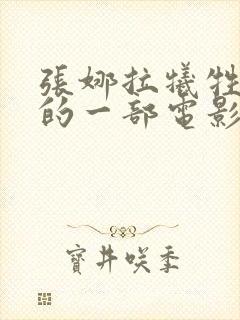 張娜拉犧牲
的一部電影
寶井咲季